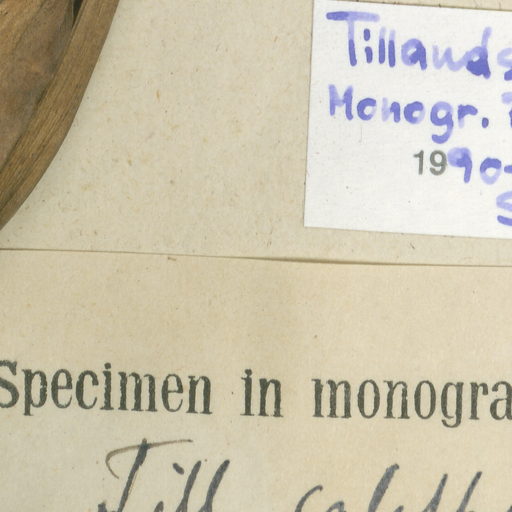 Tillands
Monogr.
1990-
S
Specimen in monogra
Till.